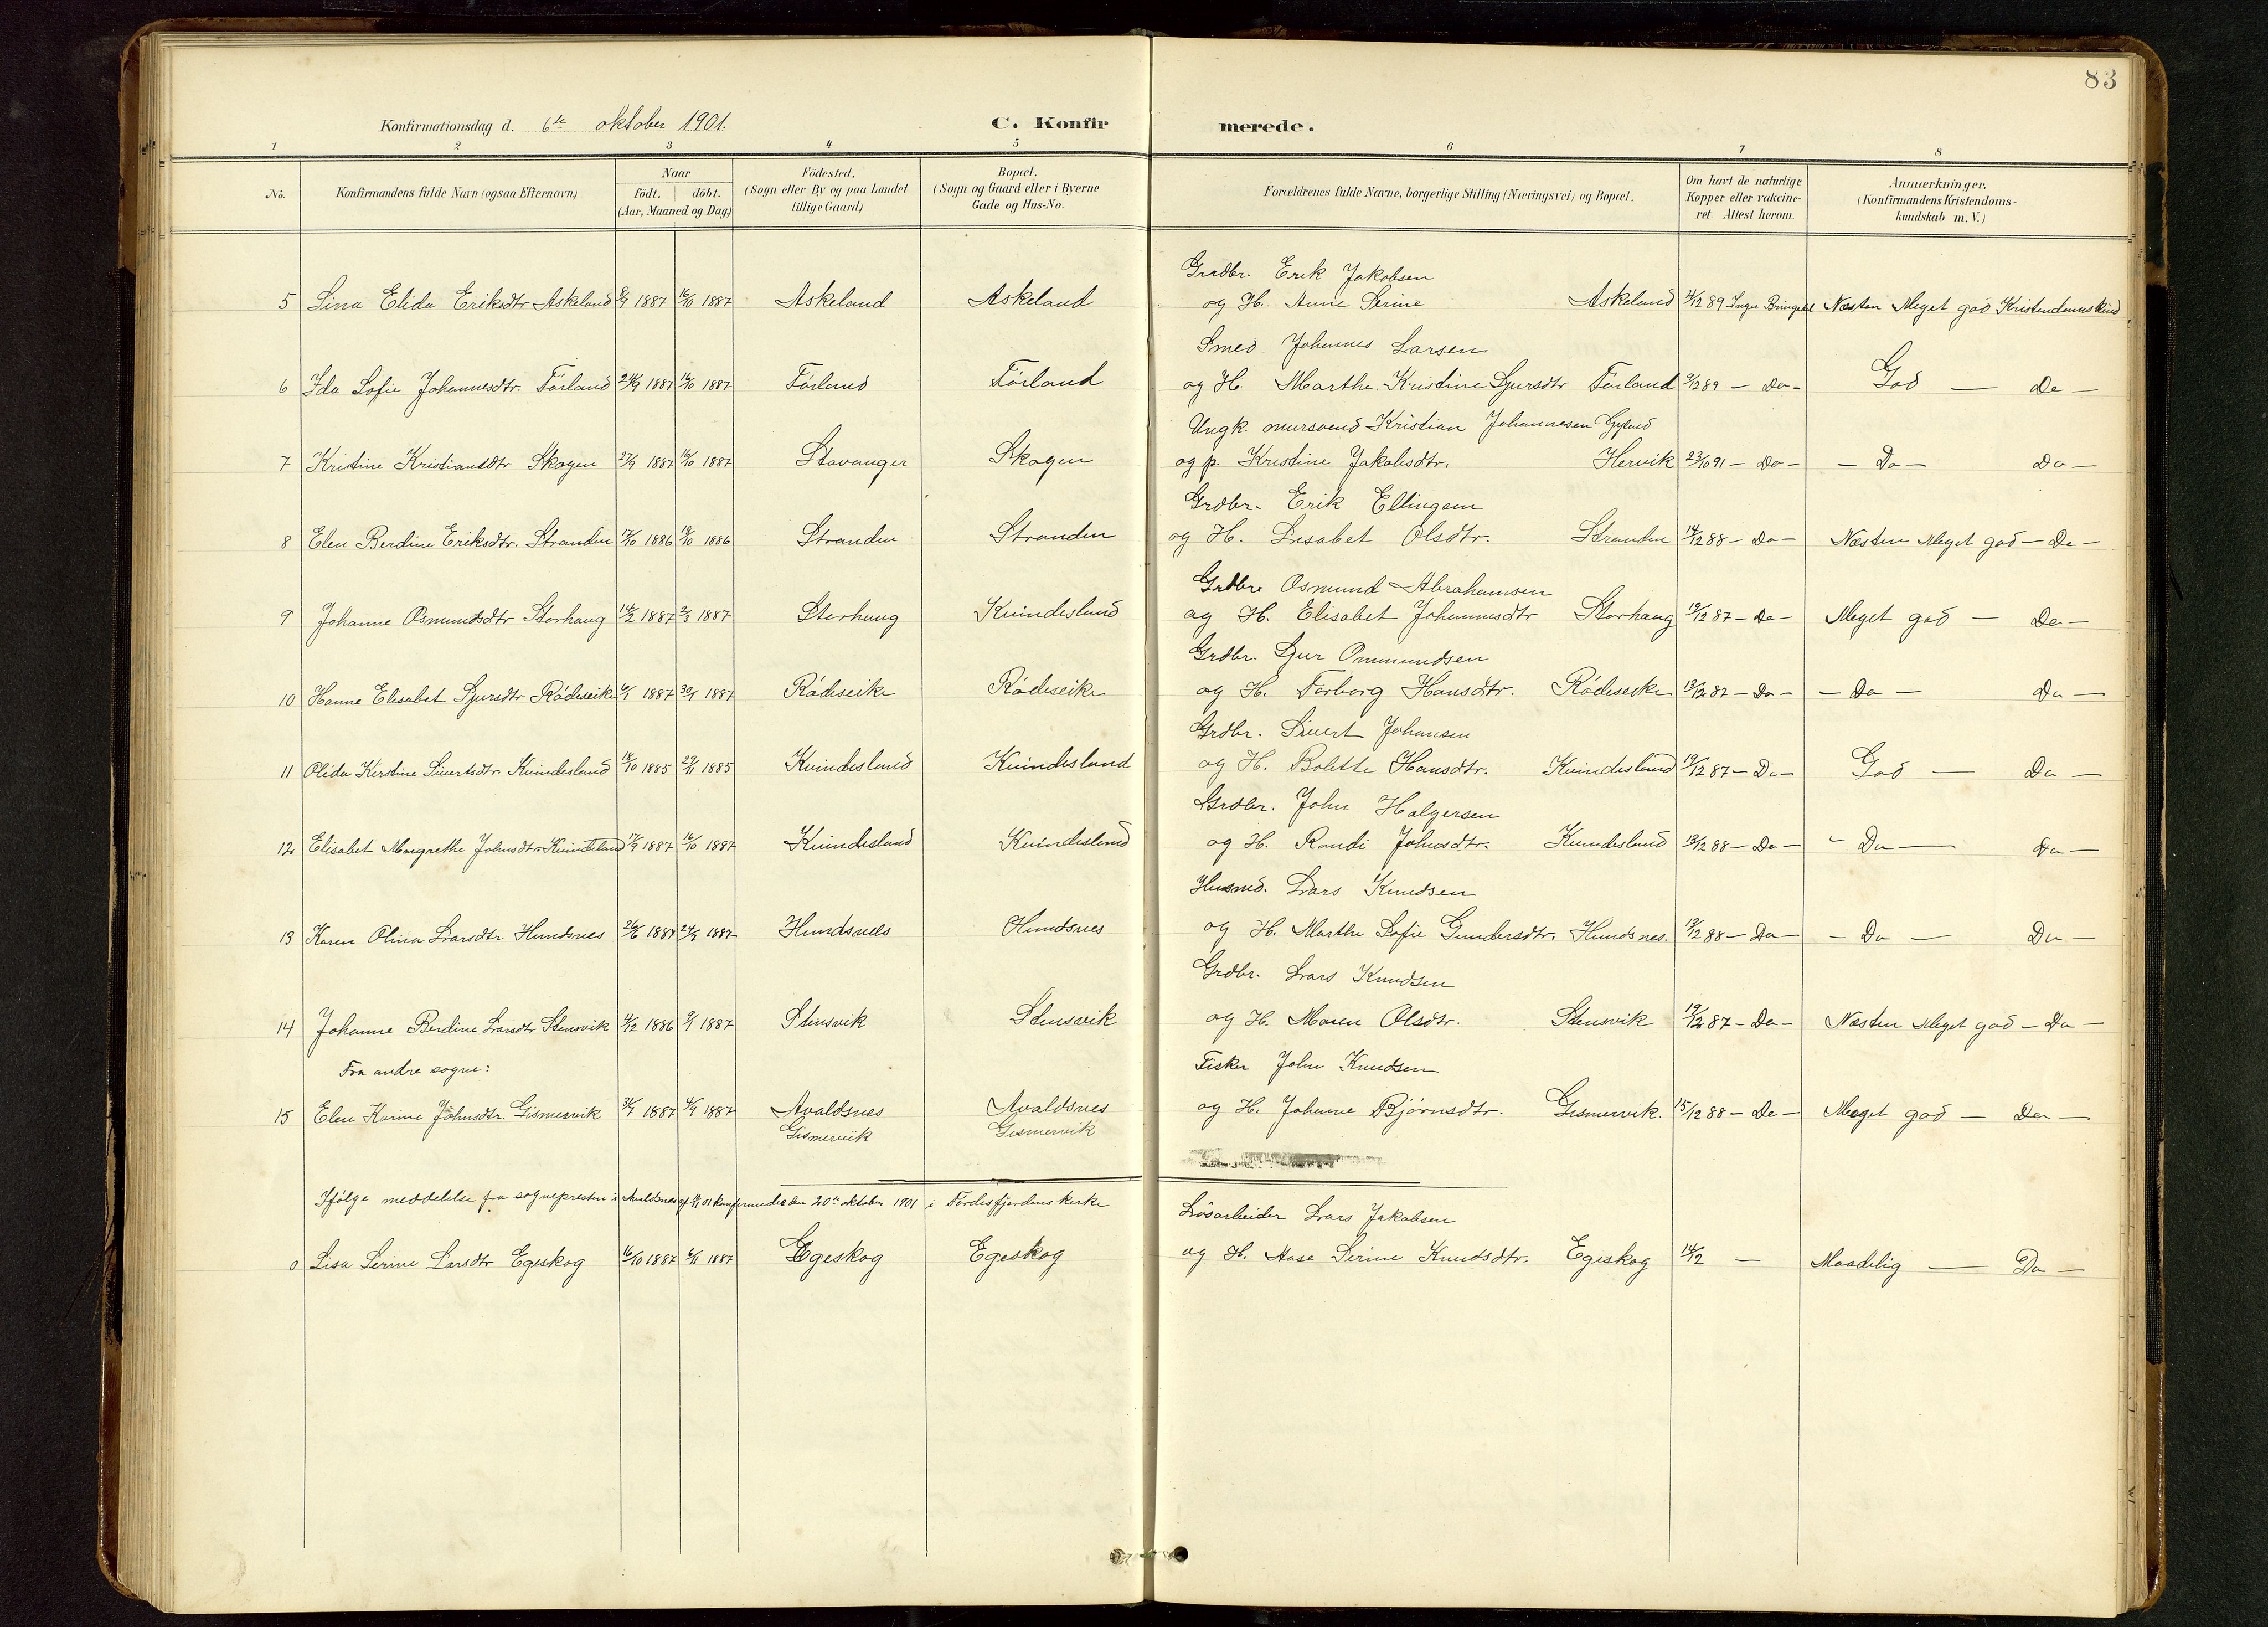 83
Konfirmationsdag d. 6te oktober 1901.
C. Konfirmerede.
1 2 3 4 5 6 7 8
No.
Konfirmandens fulde Navn (ogsaa Efternavn)
Naar
födt. döbt.
(Aar, Maaned og Dag)
Födested.
(Sogn eller By og paa Landet
tillige Gaard)
Bopæl.
(Sogn og Gaard eller i Byerne
Gade og Hus-No.
Forældrenes fulde Navne, borgerlige Stilling (Næringsvei) og Bopæl.
Om havt de naturlige
Kopper eller vakcine-
ret Attest herom.
Anmærkninger.
(Konfirmandens Kristendoms-
kundskab m. V.)
Grdbr. Erik Jakobsen
5 Sina Elida Eriksdtr Askeland 1887 16/10 1887 Askeland Askeland og H. Anne Serine Askeland Næsten Meget god Kristendomskund
Smed Johannes Larsen
6 Ida Sofie Johannesdtr. Förland 24/9 1887 16/10 1887 Förland Förland og H. Marthe Kristine Sjursdtr Förland 89 – Do – God – Do –
Ungk. mursvend Kristian Johannesen
7 Kristine Kristiansdtr Skogen 27/9 1887 16/10 1887 Stavanger Skogen og p. Kristine Jakobsdtr. Hervik 23/10 91 – Do – – Do – Do –
Grdbr. Erik Ellingsen
8 Elen Berdine Eriksdtr. Stranden 1886 1886 Stranden Stranden og H. Lisabet Olsdtr. Stranden 14/12 88 – Do – Næsten Meget god – Do –
Grdbr Osmund Abrahamsen
9 Johanne Osmundsdtr Storhaug 14/2 1887 1887 Storhaug Kvindesland og H. Elisabet Johannesdtr Storhaug 19/12 87 – Do – Meget god – Do –
Grdbr. Sjur Ommundsen
10 Hanne Elisabet Sjursdtr Rødeseike 1887 30/1 1887 Rødeseike Rødeseike og H. Torborg Hansdtr. Rødeseike 87 – Do – – Do – Do –
Grdbr. Sivert Johansen
11 Olida Kirstine Sivertsdtr. Kvindesland 18/10 1885 29/11 1885 Kvindesland Kvindesland og H. Bolette Hansdtr. Kvindesland 19/12 87 – Do – God – Do –
Grdbr. John Halgersen
12 Elisabet Margrethe Johnsdtr Kvindesland 17/9 1887 16/10 1887 Kvindesland Kvindesland og H. Randi Johnsdtr. Kvindesland 88 – Do – – Do – Do –
Husmd. Lars Knudsen
13 Karen Olina Larsdtr. Hundsnes 26/6 1887 24/7 1887 Hundsnes Hundsnes og H. Marthe Sofie Gundersdtr. Hundsnes. 88 – Do – – Do – Do –
Grdbr. Lars Knudsen
14 Johanne Berdine Larsdtr Stensvik 4/12 1886 9/1 1887 Stensvik Stensvik og H. Maren Olsdtr. Stensvik 19/12 87 – Do – Næsten Meget god – Do –
Fra andre sogne:
Fisker John Knudsen
15 Elen Karine Johnsdtr. Gismervik 31/7 1887 4/9 1887 Avaldsnes Avaldsnes og H. Johanne Bjørnsdtr. Gismervik. 15/12 88 – Do – Meget god – Do –
Gismervik Gismervik
Ifölge meddelelse fra sognepresten i Avaldsnes af konfirmedes den 20de oktober 1901 i Førdesfjordens kirke
Løsarbeider Lars Jakobsen
0 Lisa Serine Larsdtr Egeskog 16/10 1887 6/11 1887 Egeskog Egeskog og H. Aase Serine Knudsdtr. Egeskog 14/12 – Maadelig – Do –